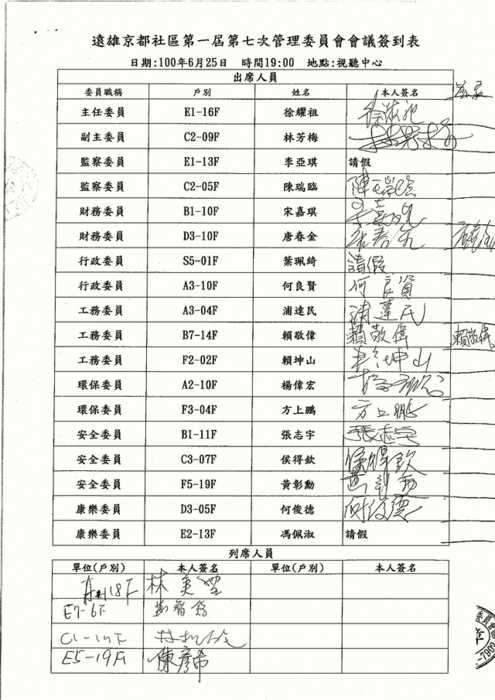 遠雄京都社區第一屆第七次管理委員會會議簽到表
日期:100年6月25日 時間19:00 地點:視聽中心
出席人員
委員職稱 戶別 姓名 本人簽名
主任委員 E1-16F 徐耀祖
副主委員 C2-09F 林芳梅
監察委員 E1-13F 李亞琪 請假
監察委員 C2-05F 陳瑞臨 陳瑞臨
財務委員 B1-10F 宋嘉琪
財務委員 D3-10F 唐春金
行政委員 S5-01F 葉珮綺 請假
行政委員 A3-10F 何良賢 何良賢
工務委員 A3-04F 浦達民 浦達民
工務委員 B7-14F 賴敬偉 賴敬偉 賴敬偉
工務委員 F2-02F 賴坤山 賴坤山
環保委員 A2-10F 楊偉宏
環保委員 F3-04F 方上鵬 方上鵬
安全委員 B1-11F 張志宇 張志宇
安全委員 C3-07F 侯得欽 侯得欽
安全委員 F5-19F 黃彰勳
康樂委員 D3-05F 何俊德 何俊德
康樂委員 E2-13F 馮佩淑 請假
列席人員
單位(戶別) 本人簽名 單位(戶別) 本人簽名
18F 林美
E7-6F
E5-19F 陳彥希